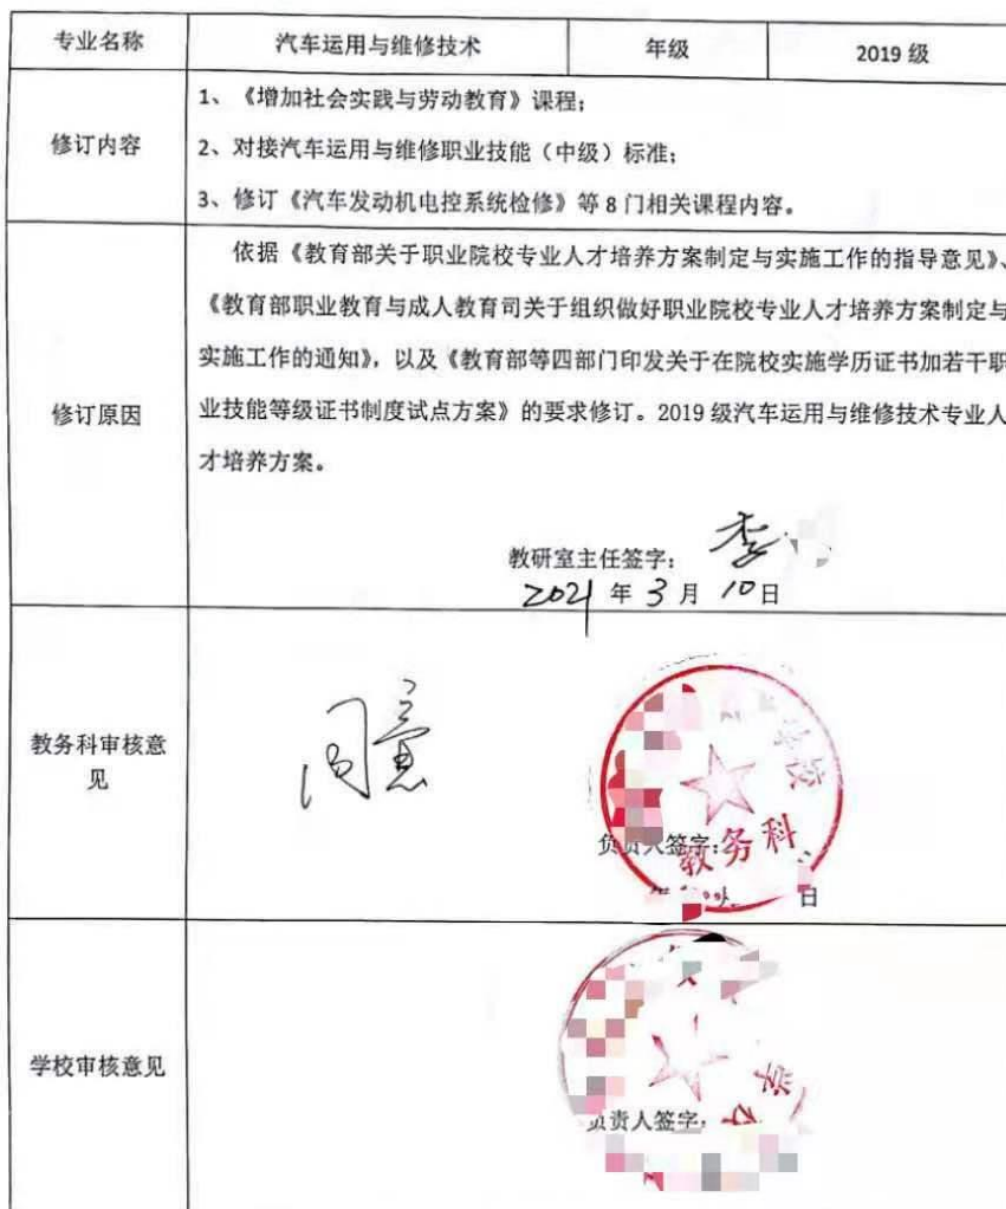 专业名称 汽车运用与维修技术 年级 2019 级
修订内容
1、《增加社会实践与劳动教育》课程；
2、对接汽车运用与维修职业技能（中级）标准；
3、修订《汽车发动机电控系统检修》等 8 门相关课程内容。
修订原因
依据《教育部关于职业院校专业人才培养方案制定与实施工作的指导意见》、
《教育部职业教育与成人教育司关于组织做好职业院校专业人才培养方案制定与
实施工作的通知》，以及《教育部等四部门印发关于在院校实施学历证书加若干职
业技能等级证书制度试点方案》的要求修订。2019 级汽车运用与维修技术专业人
才培养方案。
教研室主任签字：李
2021 年 3 月 10 日
教务科审核意
见
同意
学校
负责人签字：
教务科
日
学校审核意见
学
负责人签字：